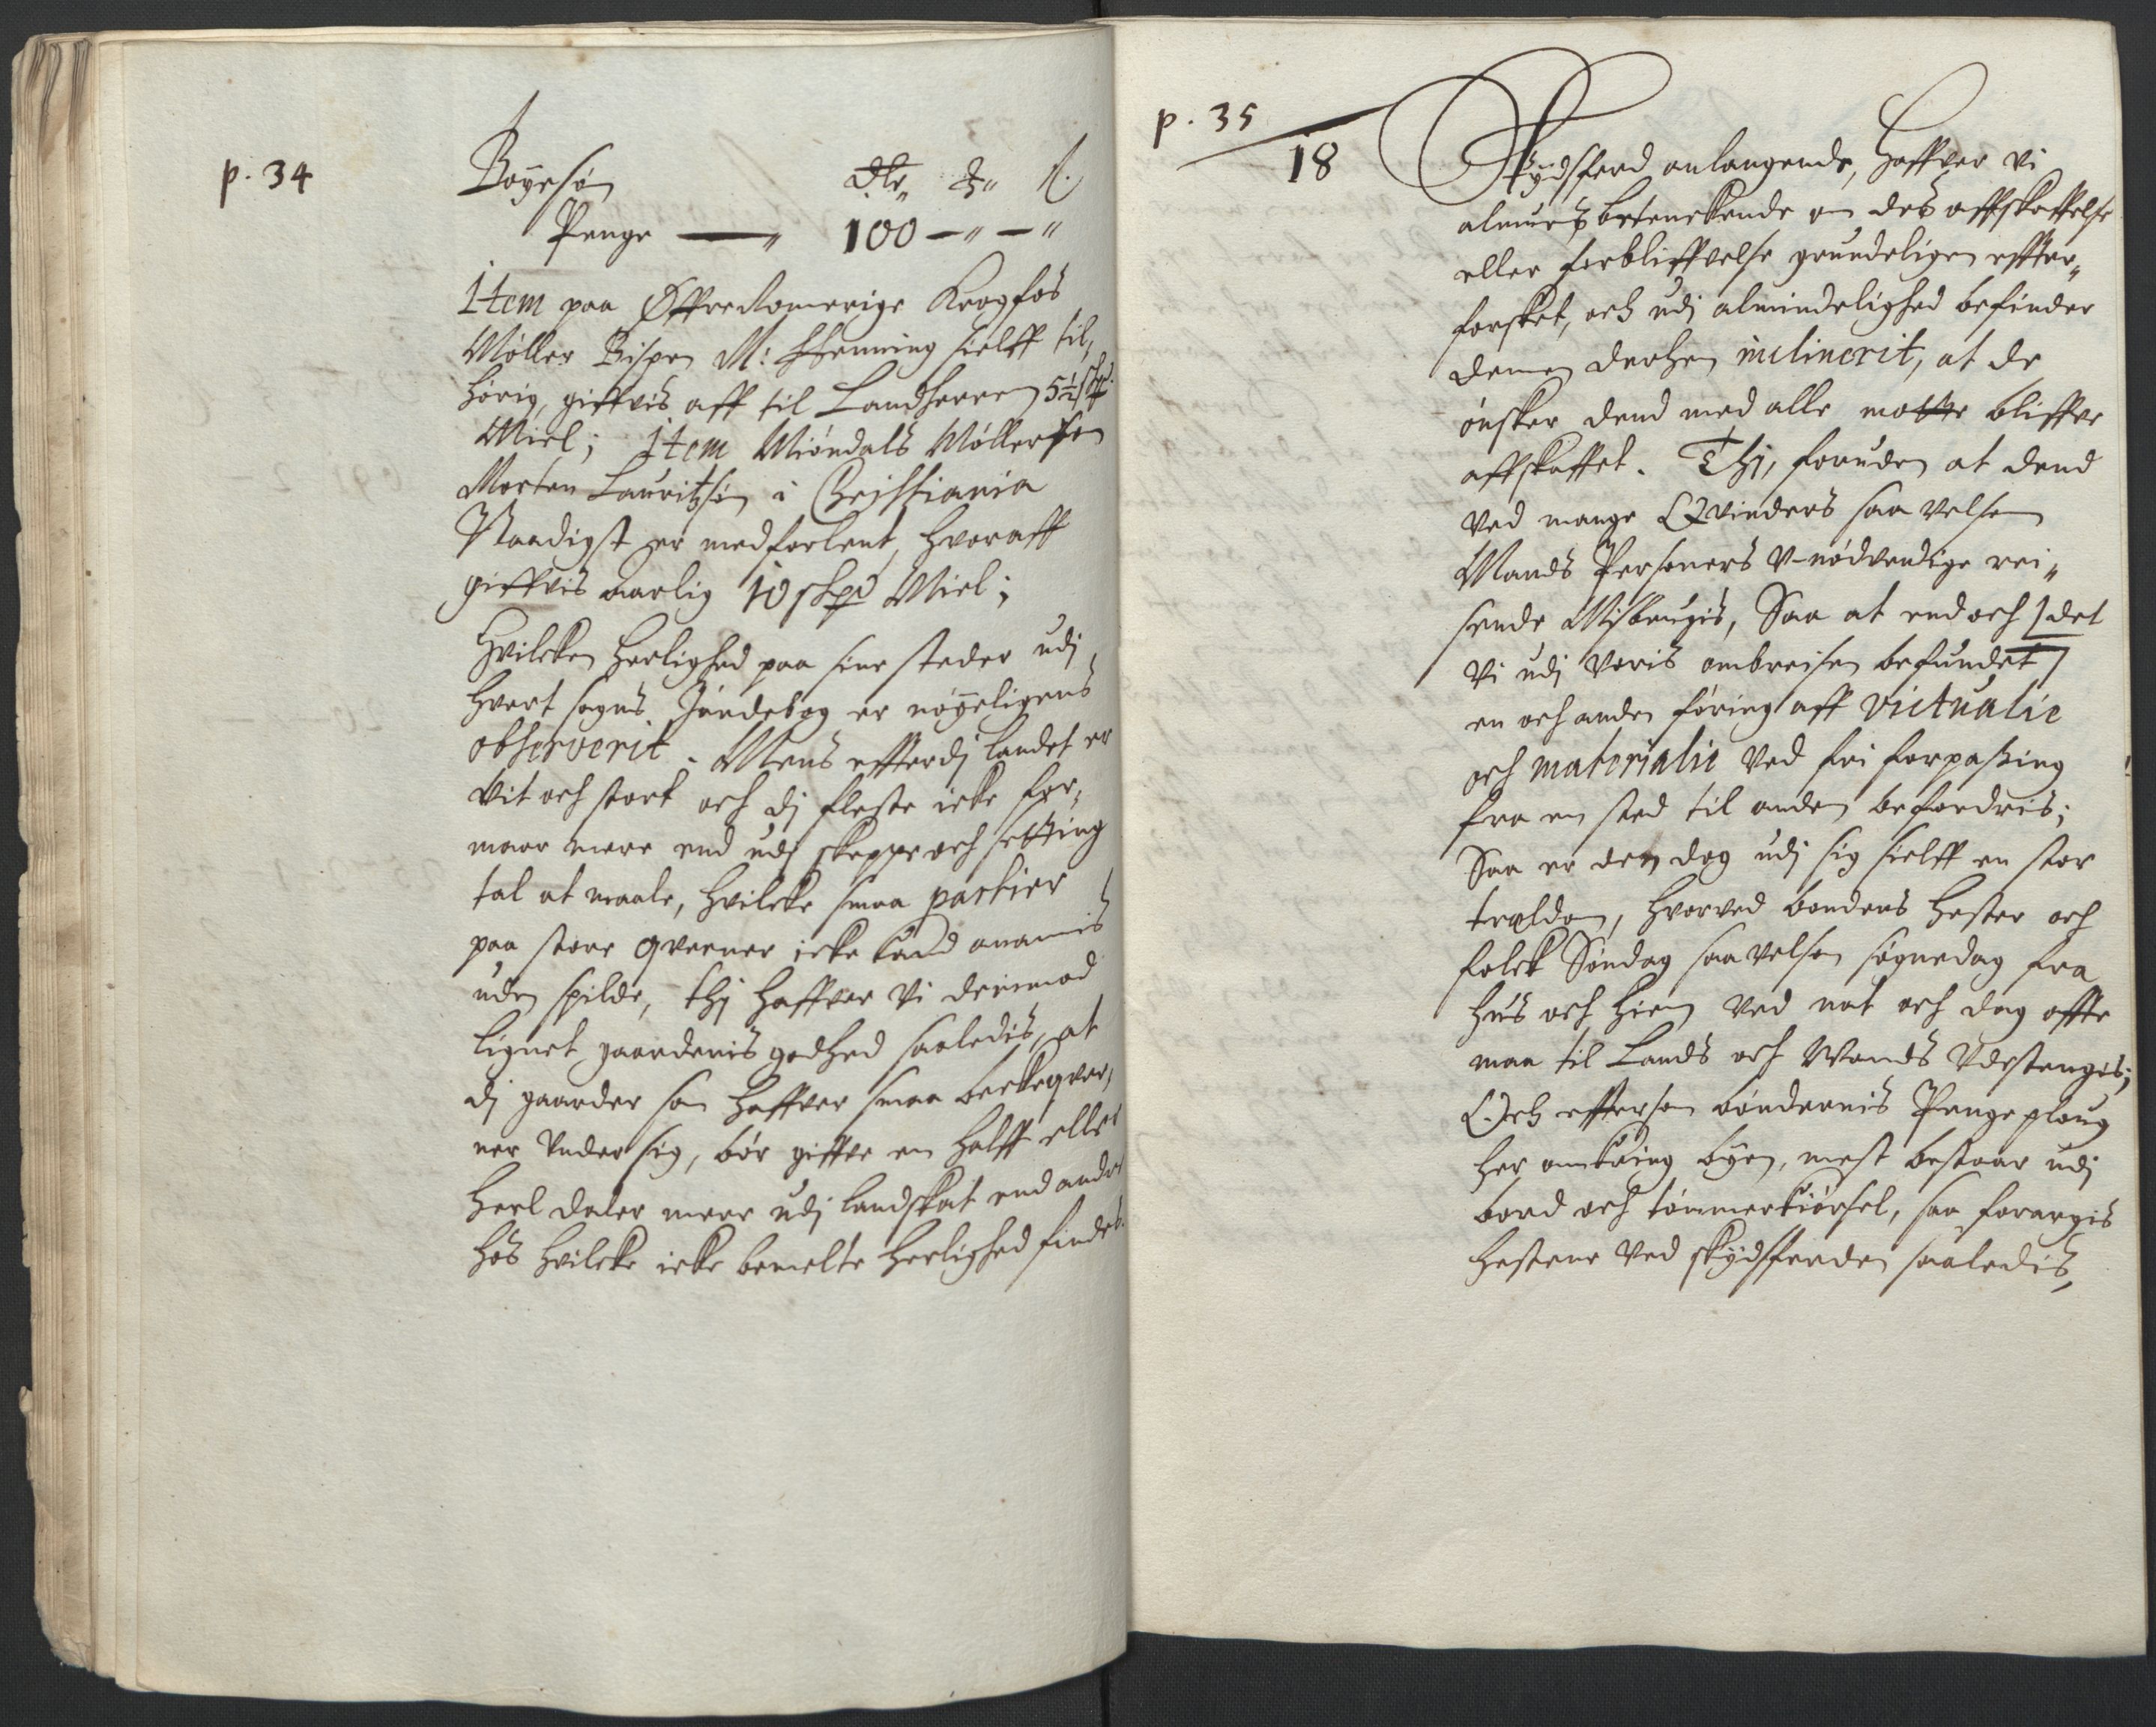 p. 34
Boÿesøn dlr„ ₰„ ß.
Penge —„ 100 —„ —„
Item paa Øffre Romerige Krogfos
Møller Bispen M: Henning sielff til„
hørig, giffvis aff til Landherren 5½ Schpd.
Miel; Item Miøndals Møller som
Morten Lauritzsøn i Christiania
Naadigst er medforlent, hvoraff
giffvis aarlig 10 skpd Miel;
Hvilcken herlighed paa sine steder udj
hvert sogns Jordebog er nøÿeligens
observerit. Mens effterdj landet er
vit och stort och dj fleste icke for„
maar mere end udj skeppe och setting
tal at maale, hvilcke smaa partier
paa store qverner icke kand anamis
uden spilde, thj haffver vi derimod
lignet gaardenis godhed saaledis, at
dj gaarder som haffver smaa beckeqver„
ner under sig, bør giffve en halff eller
heel daler meere udj landskat end andre
hos hvilcke icke bemelte herlighed findes.
p. 35
18
Skydsferd anlangende, Haffver vi
almues betenckende om des affskaffelse
eller forbliffvelse grundeligen effter„
forsket, och udj almindelighed befinder
dennem derhen inclinerit, at de
ønsker dend med alle motte bliffve
affskaffet. Thj, foruden at dend
ved mange Qvinders saavelsom
Mands Personers v-nødvendige rei„
sende Misbrugis, Saa at end och [det
vi udj voris ombreisen befundet]
en och anden føring aff victualie
och materialie ved fri forpasßing
fra en sted til anden befordris;
Saa er den dog udj sig sielff en stor
trældom, hvorved bondens hester och
folck Søndag saavelsom søgnedag fra
huus och hiem ved nat och dag offte
maa til Lands och Vands Udstrengis;
Och effterson bøndernis Pengeploug
her omkring byen, mest bestaar udj
bord och tømmerkiørsel, saa forargis
hestene ved skÿdsferden saaledis,